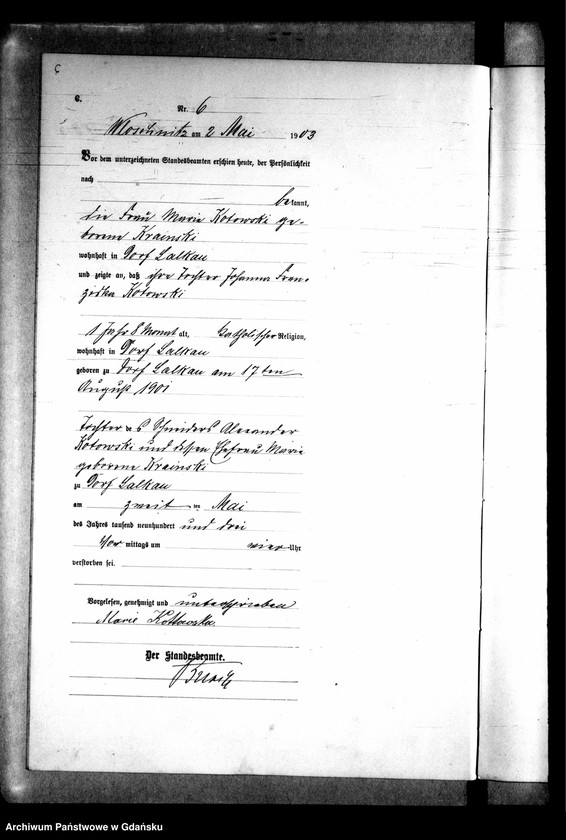 C.
Nr. 6
Wloschnitz am 2 Mai 1903
Vor dem unterzeichneten Standesbeamten erschien heute, der Persönlichkeit
nach
bekannt,
die Frau Marie Kotowski ge-
borene Krainski
wohnhaft in Dorf Lalkau
und zeigte an, daß ihre Tochter Johanna Fran-
ziska Kotowski
1 Jahr 8 Monat alt, katholischer Religion,
wohnhaft in Dorf Lalkau
geboren zu Dorf Lalkau am 17ten
August 1901
Tochter des Schneiders Alexander
Kotowski und dessen Ehefrau Marie
geborene Krainski
zu Dorf Lalkau
am zweiten Mai
des Jahres tausend neunhundert und drei
Vor mittags um vier Uhr
verstorben sei.
Vorgelesen, genehmigt und unterschrieben
Marie Kottowska.
Der Standesbeamte.
Archiwum Państwowe w Gdańsku